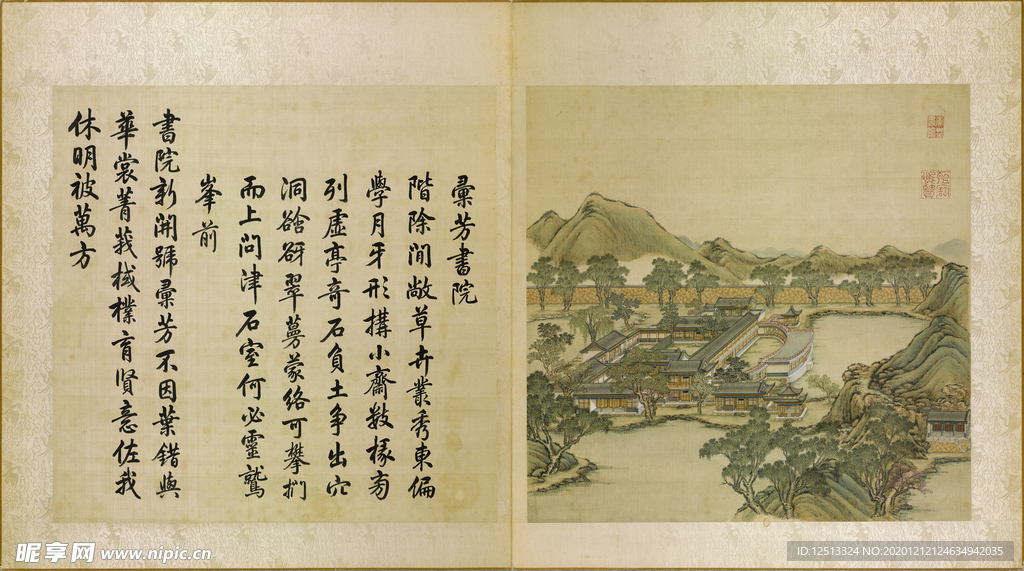 彙芳書院
階除間敞草卉叢秀東偏
學月牙形搆小齋數椽旁
列虛亭奇石負土争出穴
洞谽谺翠蔓蒙絡可攀捫
而上問津石室何必靈鷲
峯前
書院新開號彙芳不因葉錯與
華裳菁莪棫樸育賢意佐我
休明被萬方
昵享网 www.nipic.cn
ID:12513324 NO:20201212124634942035